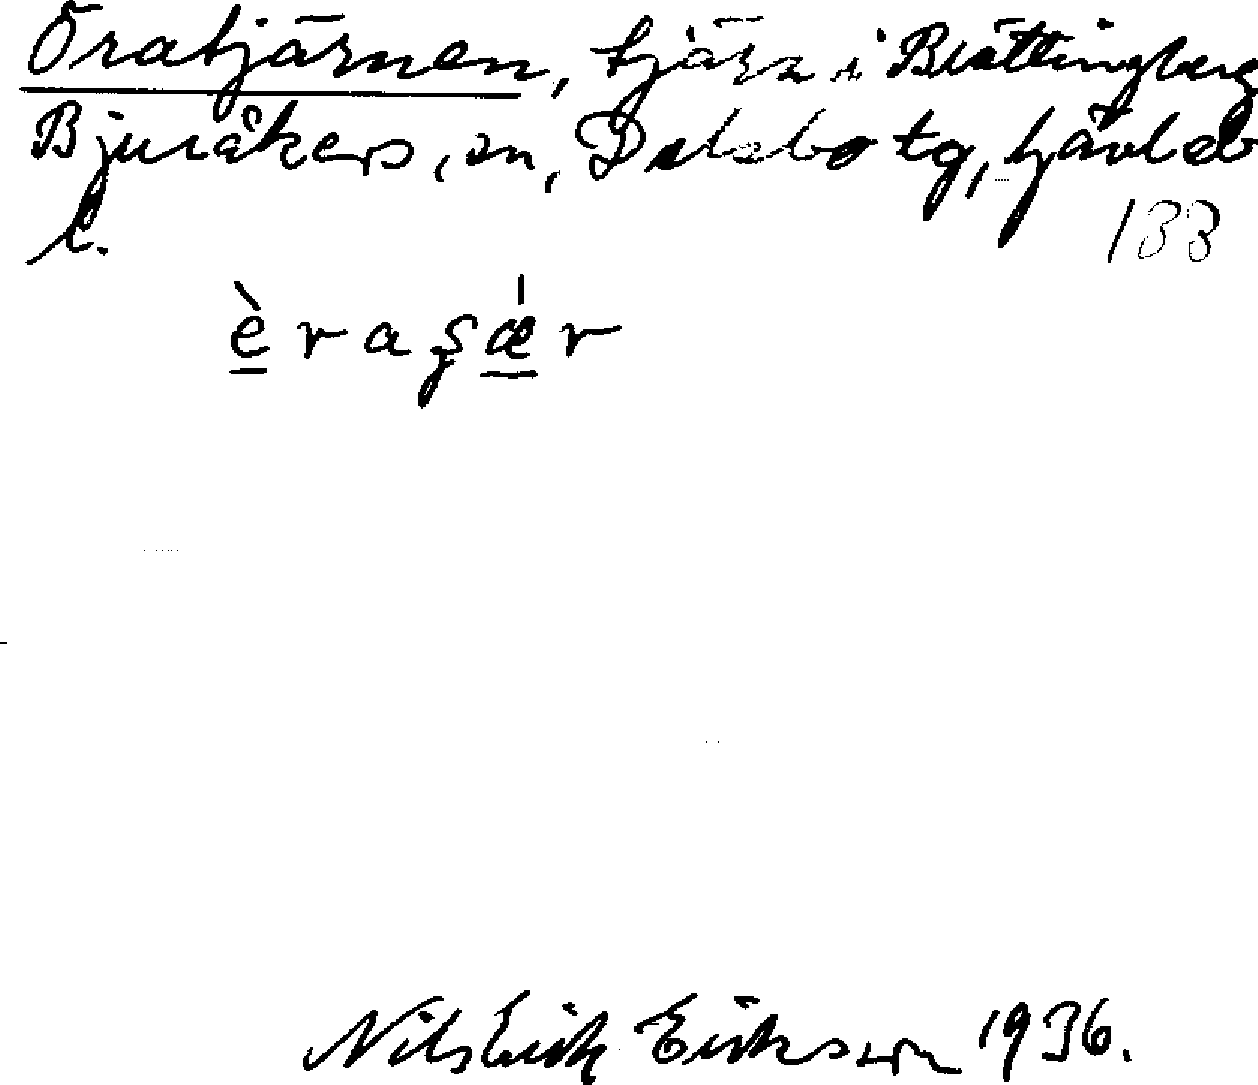 Öratjärnen, tjärn i Brättingberg
Bjuråkers, sn, Delsbo tg, Gävleb
l.
133
è r a ş ǽ r
Nils Erik Erikson 1936.